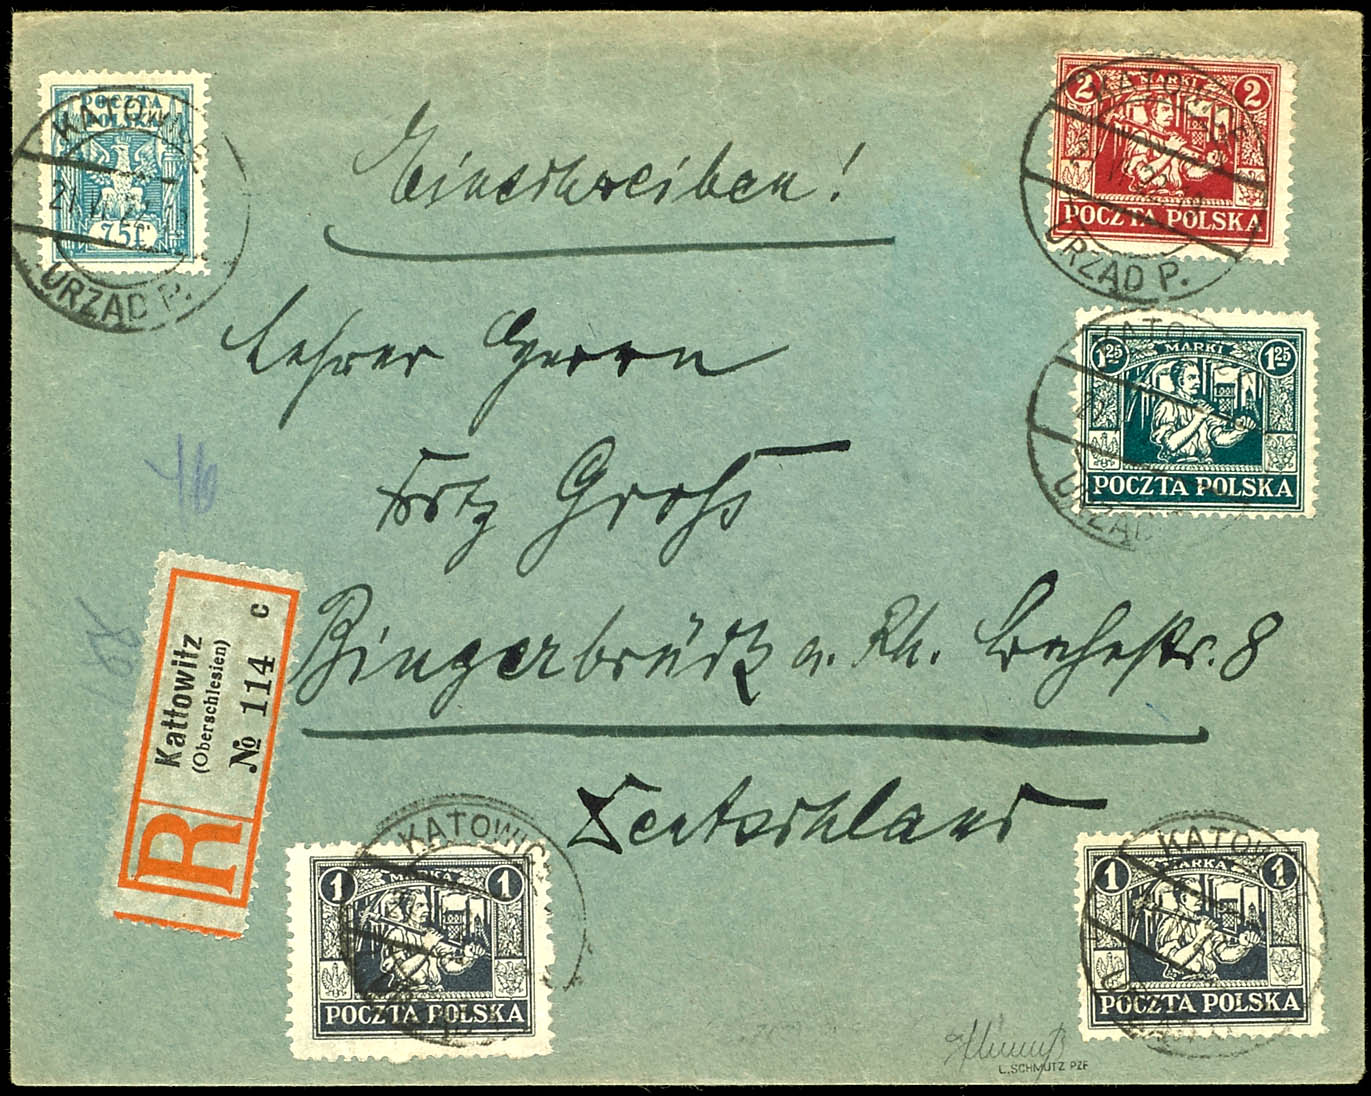 POCZTA
POLSKA
75f
KATOWICE
21.VI.22
URZĄD P.
2 MARKI 2
POCZTA POLSKA
KATOWICE
URZĄD P.
1 25 MARKI 1 25
POCZTA POLSKA
KATOWICE
URZĄD
Einschreiben!
Lehrer Herrn
Fritz Groß
Bingerbrück a. Rh. 8
Deutschland
Kattowitz
(Oberschlesien)
№ 114 c
R
1 MARKA 1
POCZTA POLSKA
KATOWICE
1 MARKA 1
POCZTA POLSKA
KATOW
L. SCHMUTZ PZF